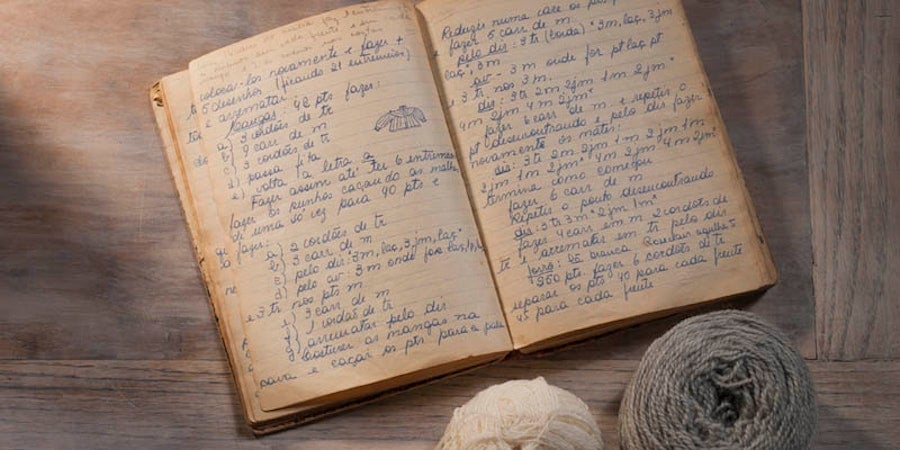 colocá-los novamente e fazer +
5 desenhos (ficando 21 entremeios)
e arrematar
Mangas: 42 pts fazer:
a) 3 cordões de tr
b) 9 carr de m
c) 3 cordões de tr
d) passa fita
e) volta à letra a
Fazer assim até ter 6 entremeios
fazer os punhos caçando as malhas
de uma só vez para 40 pts e
fazer:
a) 2 cordões de tr
b) 3 carr de m
c) pelo dir: 3m, laç, 3jm, laç*
d) pelo av: 3m onde for laç
e 3 tr nos pts m
e) 3 carr de m
f) 1 cordão de tr
g) arrematar pelo dir
costurar as mangas na
para e caçar os pts para a pala
Reduzir numa carr os pts
e fazer 5 carr de m
pelo dir: 3 tr (borda) * 3m, laç, 3jm
laç*, 3m
av - 3m onde for pt laç pt
e 3 tr nos 3m.
dir: 3 tr 2m 2jm 1m 2jm*
4m 2jm 4m 2jm*
fazer 6 carr de m e repetir o
pt desencontrando e pelo dir fazer
novamente os mates:
dir: 3 tr 2m 2jm 1m 2jm 1m
2jm 1m 2jm* 4m 2jm 4m 2jm*
termina como começou
fazer 6 carr de m
Repetir o ponto desencontrando
dir: 3 tr 3m * 2jm 1m*
fazer 4 carr em m 2 cordões de
tr e arremates em tr pelo dir
forro: lã branca agulha 5
250 pts. fazer 6 cordões de tr
separar os pts 40 para cada frente
45 para cada frente